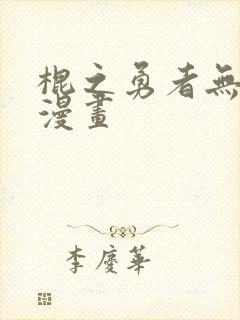 棍之勇者無
漫畫
李慶華